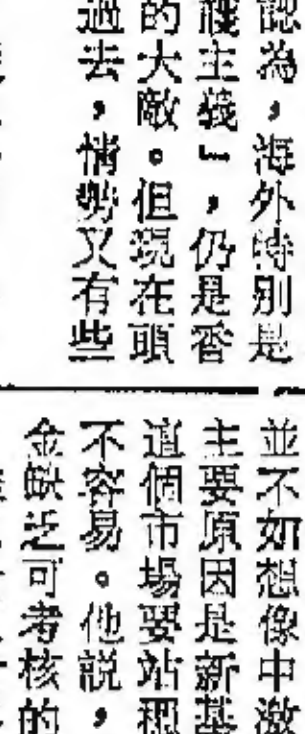 認為，海外特別是
護主義」，仍是香
的大敵。但現在頭
過去，情勢又有些
並不如想像中激
主要原因是新基
這個市場要站穩
不容易。他說，
金缺乏可考核的